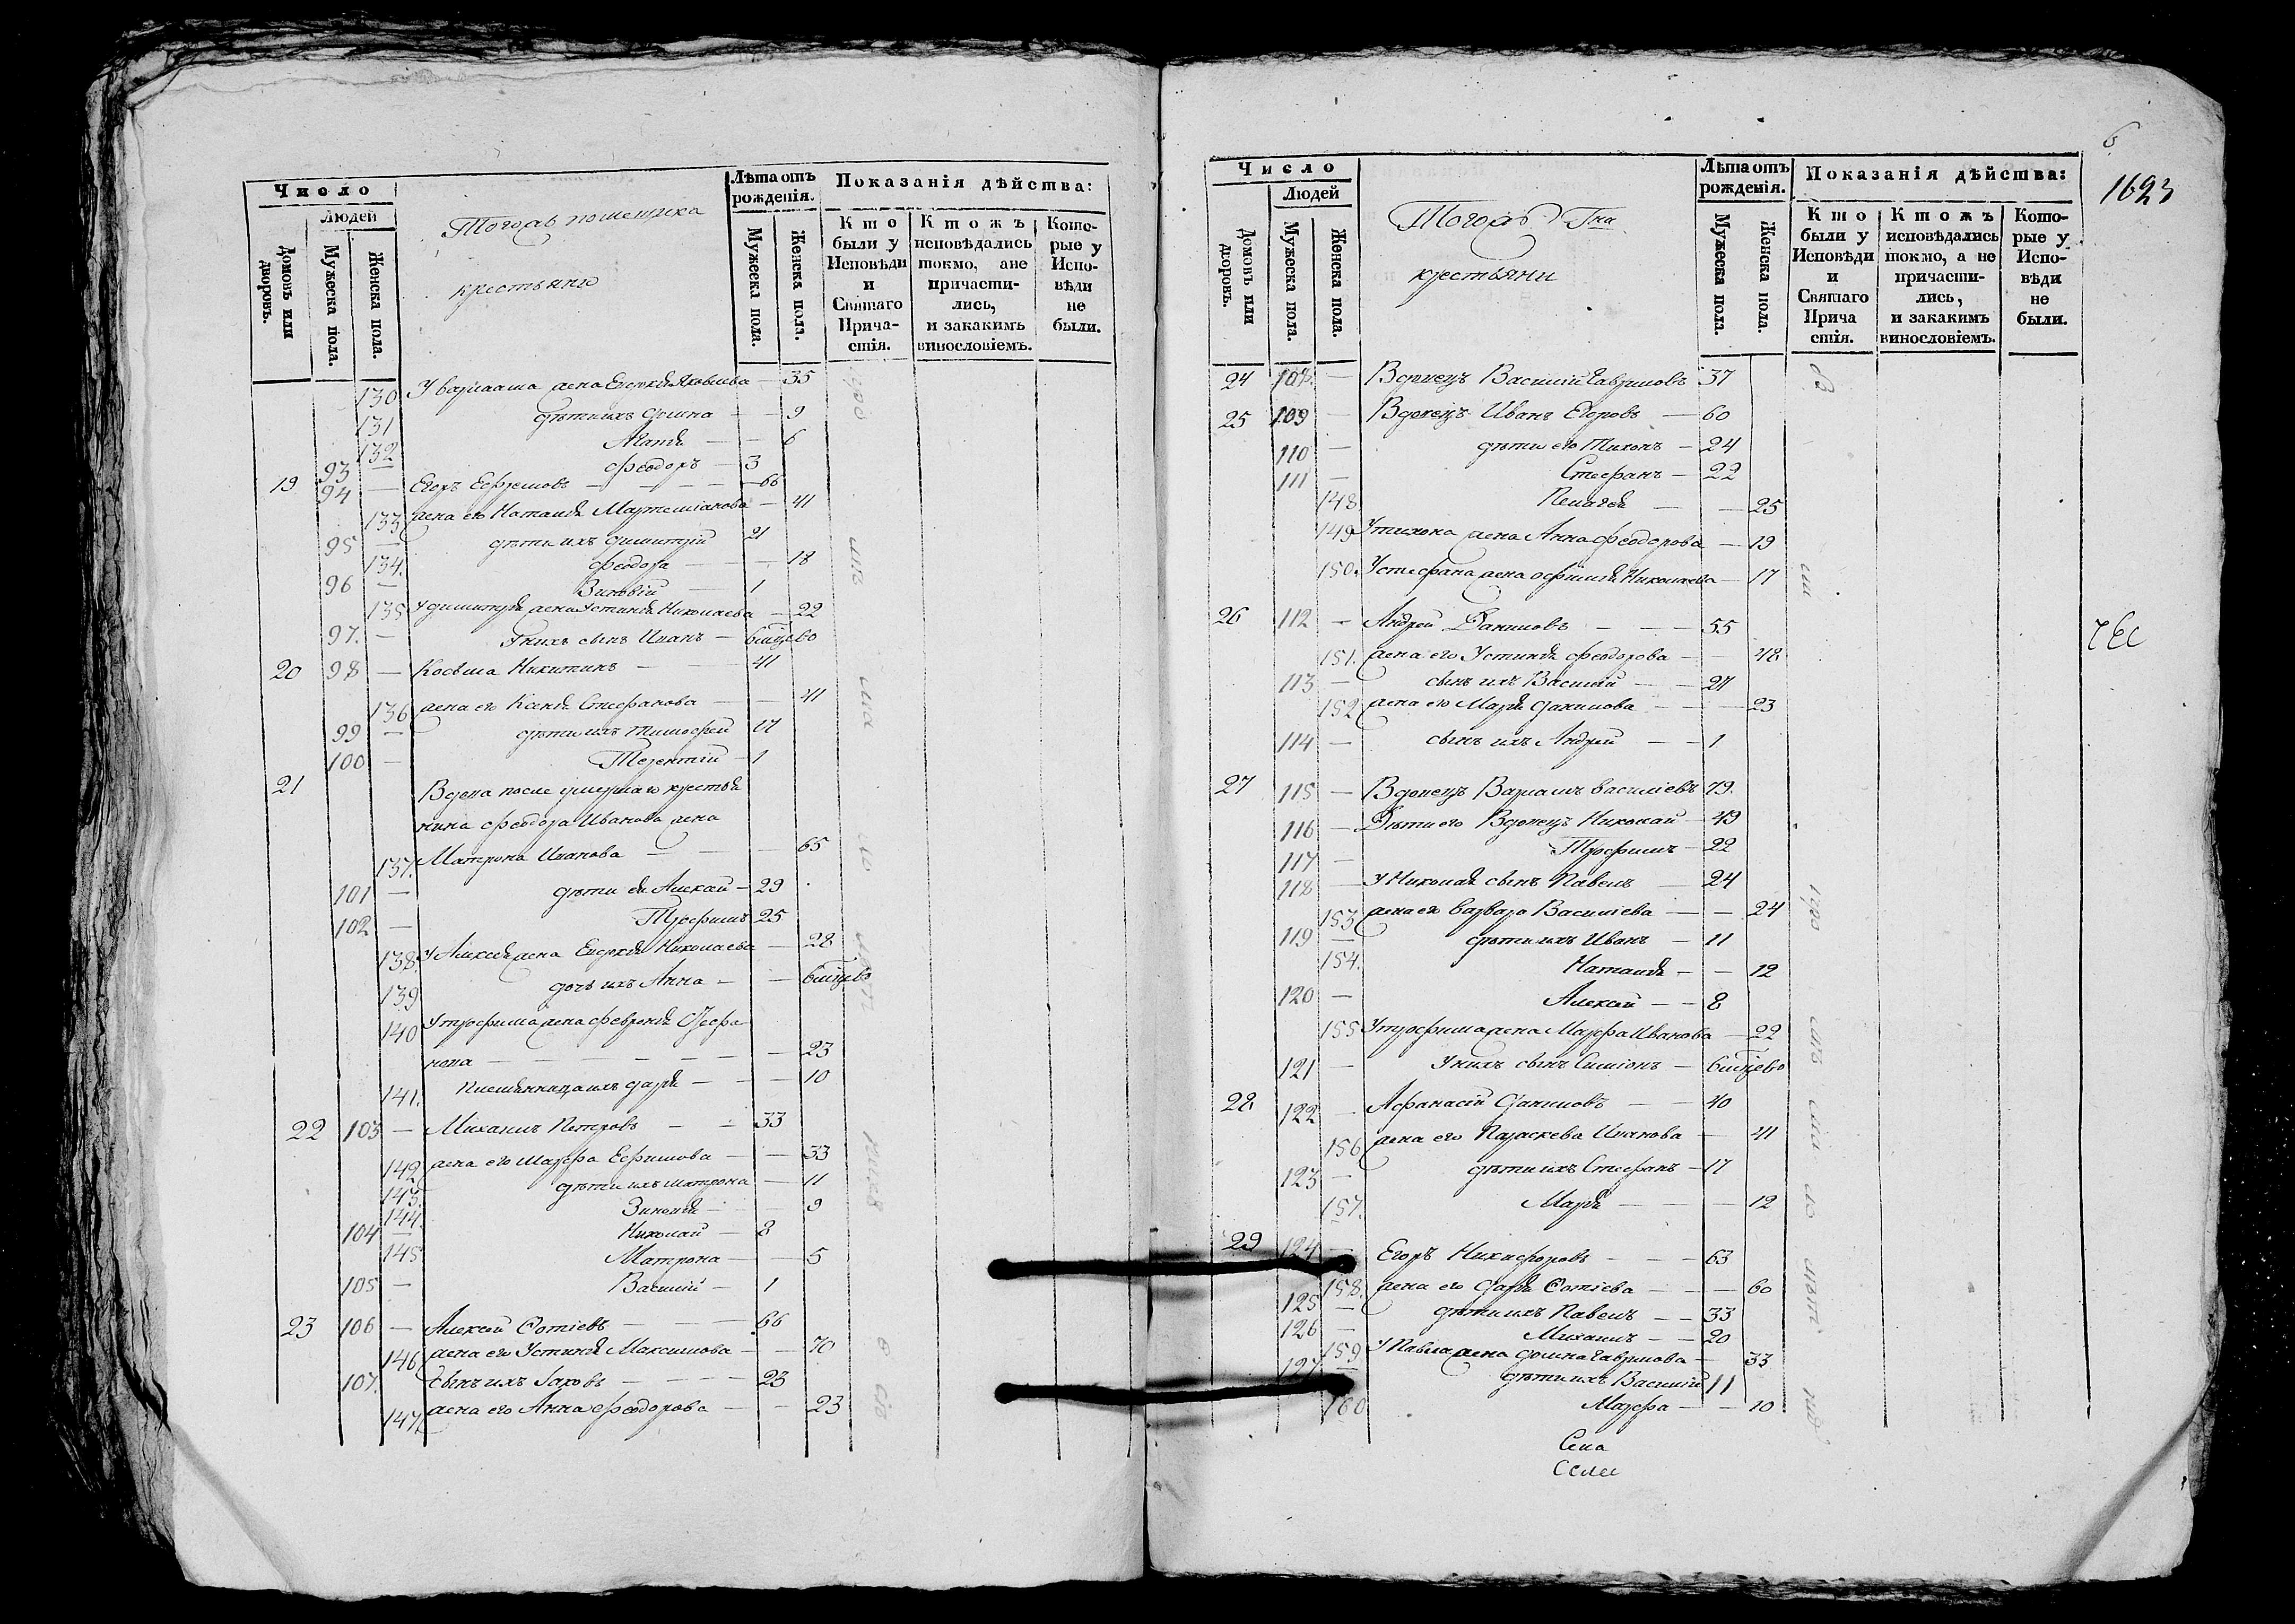 Число
Людей
Домовъ или дворовъ.
Мужеска пола.
Женска пола.
Тогожъ помещика
крестьяне
Лѣта отъ рожденія.
Мужеска пола.
Женска пола.
Показанія дѣйства:
Кто были у Исповѣди и Святаго Причастія.
Ктожъ исповѣдались токмо, а не причастились, и закакимъ винословіемъ.
Которые у Исповѣди не были.
130 У варлаама жена Евдокія Яковлева — 35
131 дѣти ихъ Домна — — 9
132 Агапія — — 6
93 — Феодоръ — 3
19 94 — Егоръ Ефремовъ — — — — 66
133 жена его Наталія Мартеміанова — 41
95 — дѣти ихъ Димитрій 21
134. Феодора — — 18
96 — Зиновій — 1
135 У димитрія жена Устинія Николаева — 22
97. — У нихъ сынъ Иванъ — 6мцево
20 98 — Косьма Никитинъ — — 41
136 жена его Ксенія Стефанова — — 41
99 — дѣти ихъ Тимофей 17
100 — Терентій — 1
21 Вдова после умершаго крестья
нина Феодора Иванова жена
137. Матрона Иванова — — — 65
101 — дѣти ея Алексей — 29
102 — Трофимъ 25
138. У Алексея жена Евдокія Николаева — 28
139 дочь ихъ Анна — — 6мцево
140 У трофима жена Февронія Стефа
нова — — — — — — 23
141. Племянница ихъ дарія — — — 10
22 103 — Михаилъ Петровъ — — 33
142 жена его Марфа Ефимова — — 33
143. дѣти ихъ матрона — 11
144. Зиновія — — 9
104 — Николай — 8
145 Матрона — — 5
105 — Василій — 1
23 106 — Алексей Фотіевъ — — — 66
146 жена его Устинія Максимова — — 70
107. сынъ ихъ Іаковъ — — — — 23
147. жена его Анна Феодорова — — 23
6
1623
Число
Людей
Домовъ или дворовъ.
Мужеска пола.
Женска пола.
Тогожъ Гна
крестьяни
Лѣта отъ рожденія.
Мужеска пола.
Женска пола.
Показанія дѣйства:
Кто были у Исповѣди и Святаго Прича стія.
Ктожъ исповѣдались токмо, а не причастились, и закакимъ винословіемъ.
Которые у Исповѣди не были.
24 108. — Вдовецъ Василій Гавриловъ 37
25 109 — Вдовецъ Иванъ Егоровъ — 60
110 — дѣти его Тихонъ — 24
111 — Стефанъ — 22
148 Пелагея — — 25
149 У тихона жена Анна Феодорова — 19
150. У стефана жена Офимія Николаева — 17
26 112 — Андрей Даниловъ — — — 55
151. жена его Устинія Феодорова — — 48
113 — сынъ ихъ Василій — — 21
152 жена его Марія Данилова — — — 23
114 — сынъ ихъ Андрей — — 1
27 115 — Вдовецъ Варламъ Василіевъ 79.
116 — Дѣти его Вдовецъ Николай — 49
117 — Трофимъ — 22
118 — У Николая сынъ Павелъ — 24
153 жена его Варвара Василіева — — 24
119 — дѣти ихъ Иванъ — 11
154. Наталія — — 12
120 — Алексей — — 8
155 У трофима жена Марфа Иванова — 22
121 — У нихъ сынъ Симіонъ — 6мцево
28 122 — Афанасій Даниловъ — — 40
156 жена его Параскева Иванова — 41
123 — дѣти ихъ Стефанъ — 17
157. Марія — — — 12
29 124 — Егоръ Никифоровъ — — — 63
158. жена его Дарія Фотіева — — — 60
125 — дѣти ихъ Павелъ — — 33
126 — Михаилъ — — 20
159 У Павла жена Домна Гаврилова — 33
127 — дѣти ихъ Василій 11
160 Марфа — — 10
Села